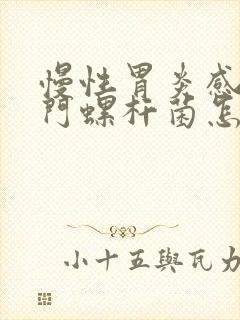 慢性胃炎感
门螺杆菌怎
小十五與瓦力